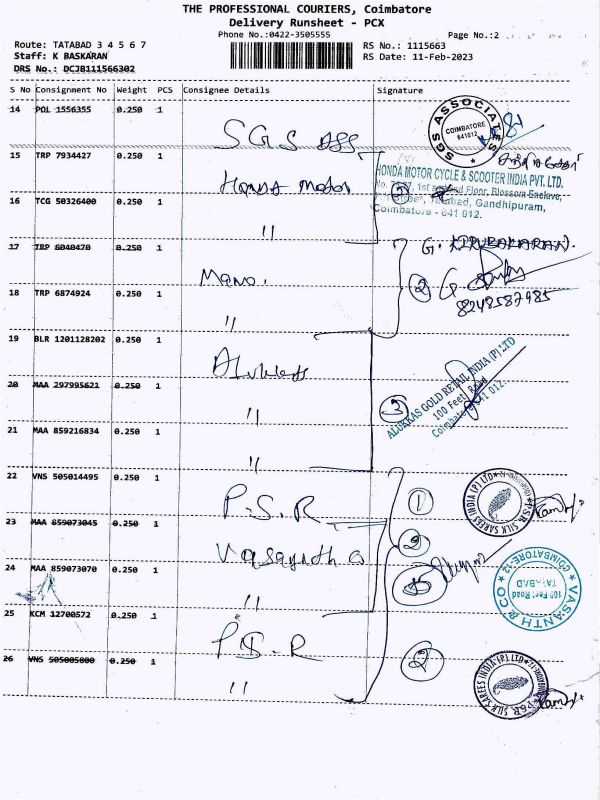 THE PROFESSIONAL COURIERS, Coimbatore
Delivery Runsheet - PCX
Phone No.:0422-3505555
Page No.:2
Route: TATABAD 3 4 5 6 7
RS No.: 1115663
Staff: K BASKARAN
RS Date: 11-Feb-2023
DRS No.: DCJB111566302
S No Consignment No Weight PCS Consignee Details Signature
14 POL 1556355 0.250 1
SGS ASS
SGS ASSOCIATES
COIMBATORE
641012
15 TRP 7934427 0.250 1
Honda Motor
HONDA MOTOR CYCLE & SCOOTER INDIA PVT. LTD.
1st and 2nd Floor, Blossom Enclave,
Tatabad, Gandhipuram,
Coimbatore - 641 012.
16 TCG 50326400 0.250 1
"
2
17 TRP 6040470 0.250 1
Mano.
G. KIRUBAKARAN.
2
8248587985
18 TRP 6874924 0.250 1
"
19 BLR 1201128202 0.250 1
Alukkas
ALUKKAS GOLD RETAIL INDIA (P) LTD
100 Feet Road
Coimbatore 641 012.
20 MAA 297995621 0.250 1
"
3
21 MAA 859216834 0.250 1
"
22 VNS 505014495 0.250 1
P.S.R
1
P.S.R. SILK SAREES INDIA (P) LTD
23 MAA 859073045 0.250 1
Vasantha
2
24 MAA 859073070 0.250 1
"
VASANTH & CO
COIMBATORE-12
100 Feet Road
TATABAD
25 KCM 12700572 0.250 1
P.S.R
2
26 VNS 505005000 0.250 1
"
P.S.R. SILK SAREES INDIA (P) LTD